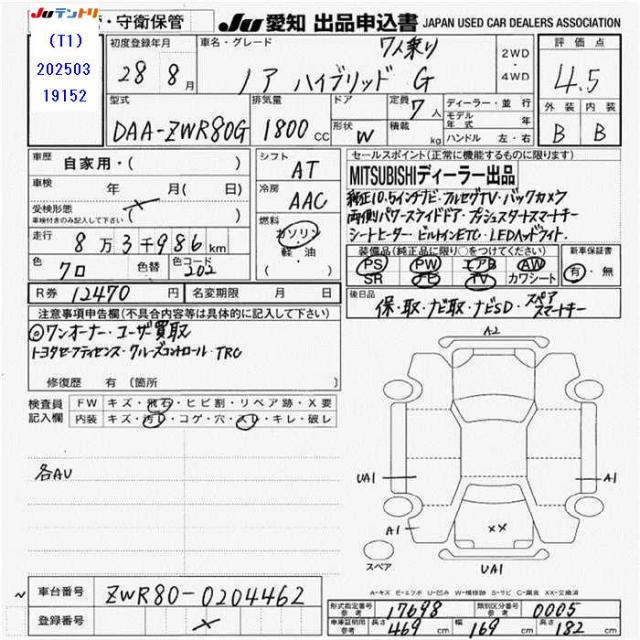 Juテントリ
(T1)
202503
19152
・守衛保管
Ju 愛知 出品申込書 JAPAN USED CAR DEALERS ASSOCIATION
初度登録年月 28年 8月
車名・グレード 7人乗り
ノア ハイブリッド G
2WD・4WD
評価点 4.5
外装 内装
B B
型式 DAA-ZWR80G
排気量 1800cc
ドア
形状 W
定員 7人
積載 kg
ディーラー・並行
モデル年式 年
ハンドル 左・右
車歴 自家用・( )
車検 年 月( 日)
受検形態 ( )
車検付きのみ記入して下さい
走行 8万3千986km
色 クロ 色替 色コード 202
シフト AT
冷房 AAC
燃料 ガソリン
軽油
( )
セールスポイント(正常に機能するものに限ります)
MITSUBISHIディーラー出品
純正10.5インチナビ・フルセグTV・バックカメラ
両側パワースライドドア・プッシュスタートスマートキー
シートヒーター・ビルトインETC・LEDヘッドライト.
装備品(純正品に限り○をつけてください)
PS PW エアB AW
SR ナビ TV カワシート
新車保証書
有・無
R券 12470円 名変期限 月 日
後日品 保・取・ナビ取・ナビSD・スペアスマートキー
注意事項申告欄(不具合内容等は具体的に記入して下さい)
◎ワンオーナー・ユーザー買取
トヨタセーフティセンス・クルーズコントロール・TRC
修復歴 有 (箇所 )
検査員記入欄
FW キズ・飛石・ヒビ割・リペア跡・X要
内装 キズ・汚レ・コゲ・穴・スレ・キレ・破レ
各AU
A2
UA1
A1
A1
××
UA1
スペア
A-キズ E-エクボ U-凹み W-補修跡 S-サビ C-腐食 XX-交換済
車台番号 ZWR80-0204462
登録番号
形式指定番号 参考 17698 類別区分番号 参考 0005
車庫証明用 参考 長さ 469cm 幅 169cm 高さ 182cm